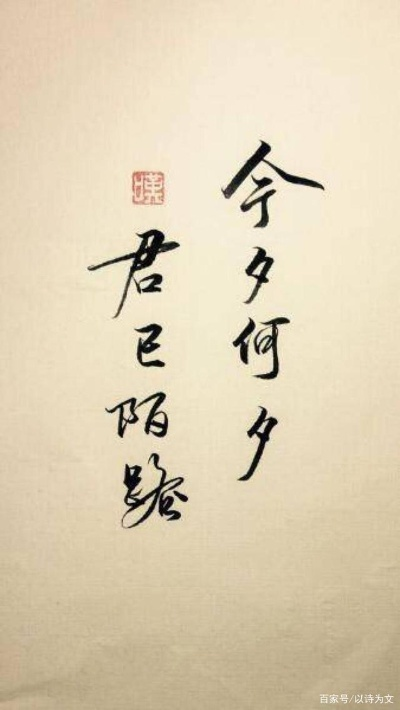 今夕何夕
君已陌路
嘆
百家号/以诗为文